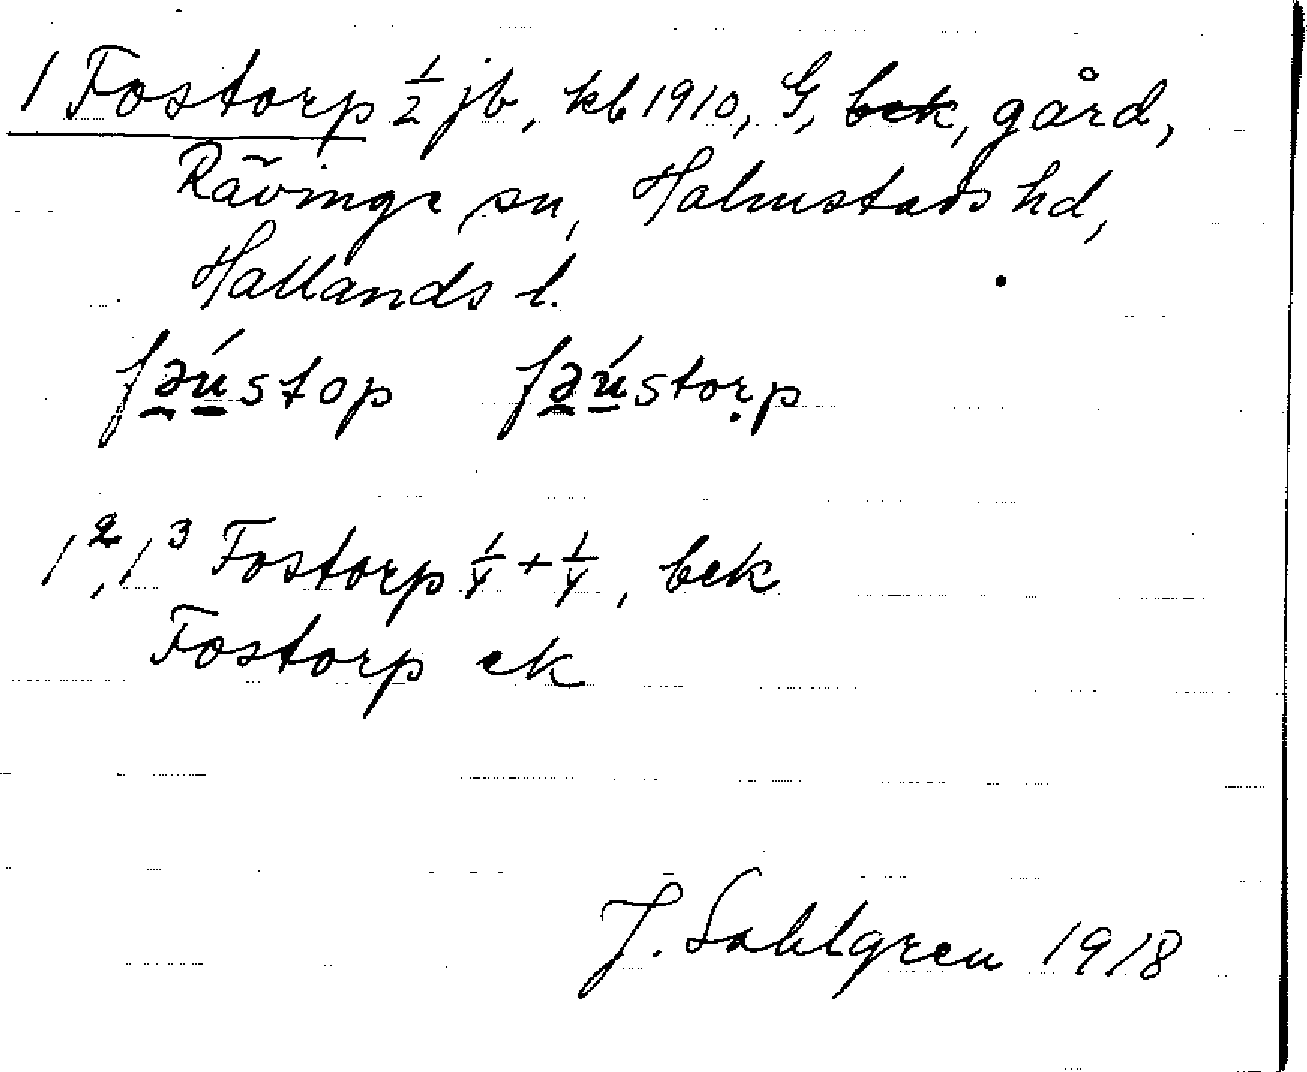 1 Fostorp ½ jb, kb 1910, G, bek, gård,
Rävinge sn, Halmstads hd,
Hallands l.
fǝústop fǝústorp
1², 1³ Fostorp ¼ + ¼, bek
Fostorp ek
J. Sahlgren 1918